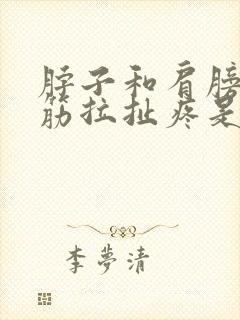 脖子和肩膀
筋拉扯疼是
李夢清